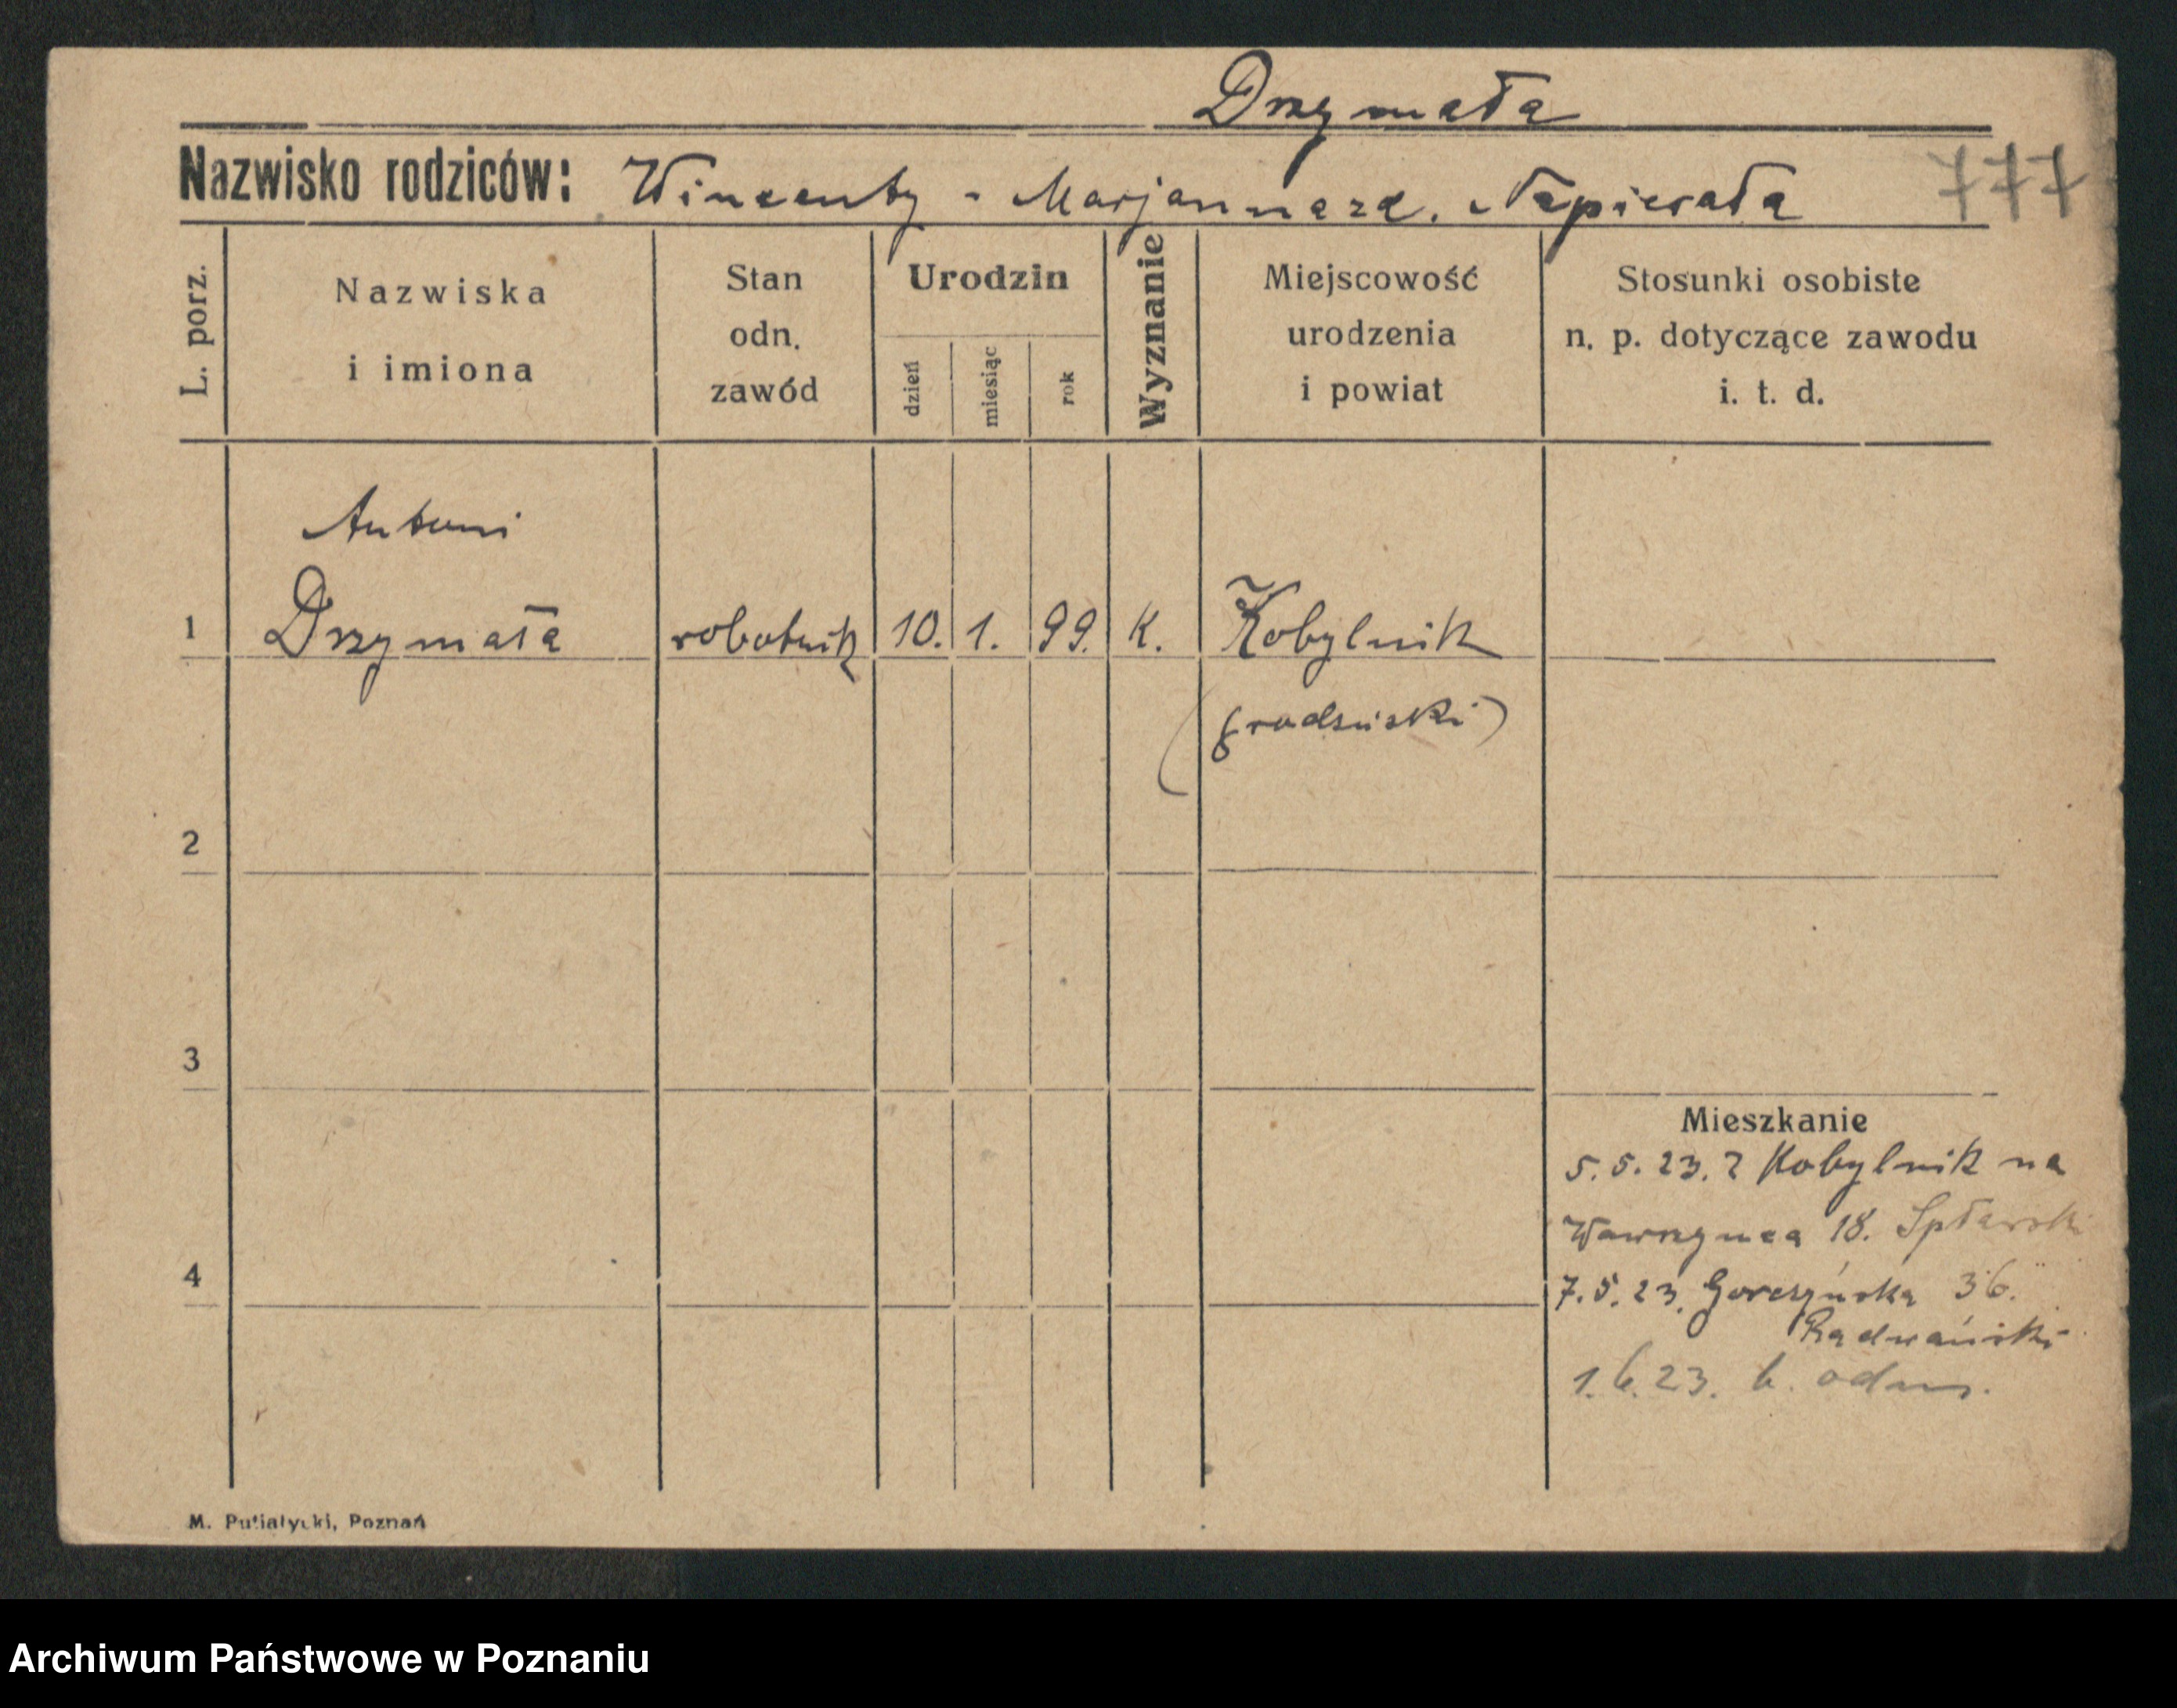 Drzymała
Nazwisko rodziców: Wincenty - Marjanna zd. Napierała
777
L. porz.
Nazwiska
i imiona
Stan
odn.
zawód
Urodzin
dzień
miesiąc
rok
Wyznanie
Miejscowość
urodzenia
i powiat
Stosunki osobiste
n. p. dotyczące zawodu
i. t. d.
Antoni
1 Drzymała robotnik 10. 1. 99. K. Kobylnik
(grodziski)
2
3
Mieszkanie
5.5.23. z Kobylnik na
Wawrzyńca 18. Spławski
4
7.5.23. Gorczyńska 36.
Radwański
1.6.23. b. odm.
M. Putiatycki, Poznań
Archiwum Państwowe w Poznaniu